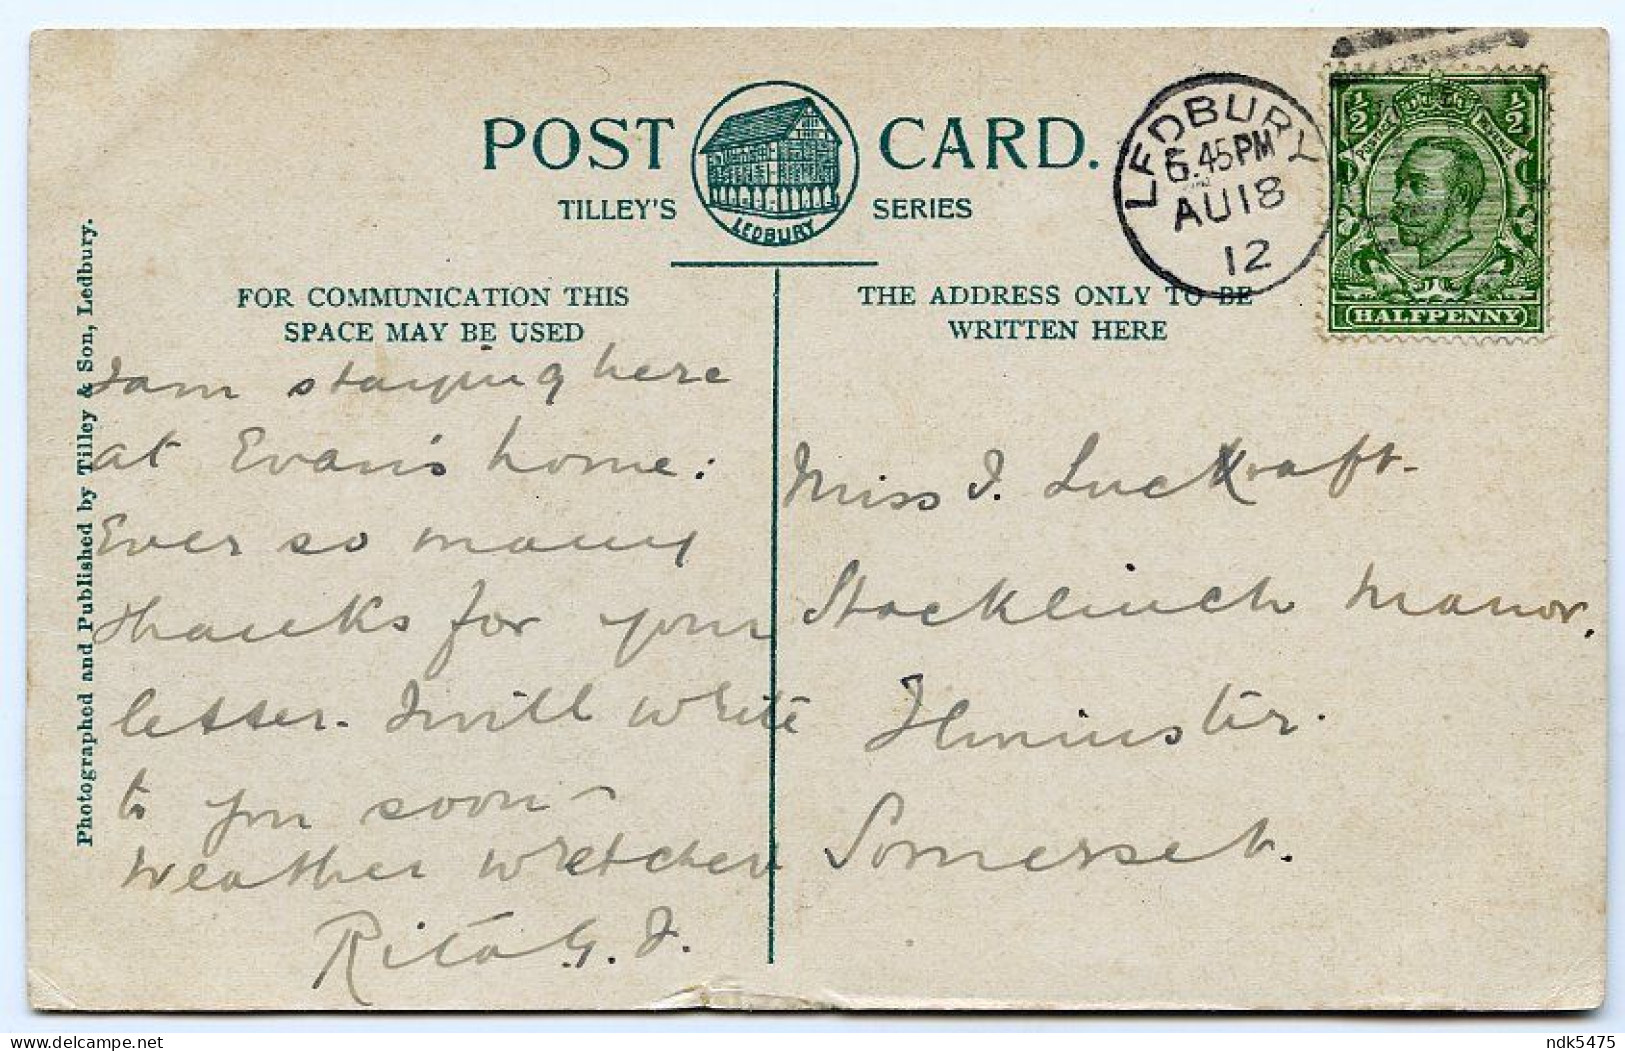 POST CARD.
TILLEY'S SERIES
LEDBURY
LEDBURY
6.45PM
AU 18
12
½ ½
POSTAGE REVENUE
HALFPENNY
Photographed and Published by Tilley & Son, Ledbury.
FOR COMMUNICATION THIS
SPACE MAY BE USED
I am staying here
at Evan's home:
Ever so many
thanks for your
letter. I will write
to you soon –
Weather wretched
Rita G. J.
THE ADDRESS ONLY TO BE
WRITTEN HERE
Miss I. Luckraft.
Stocklinch Manor,
Ilminster.
Somerset.
ndk5475
delcampe.net